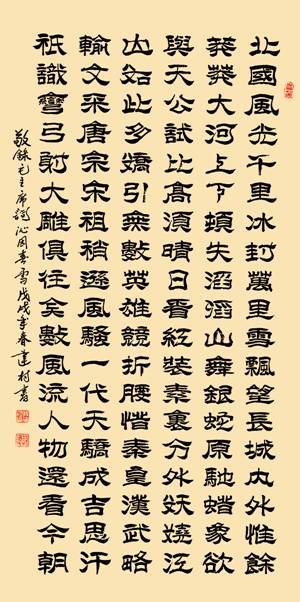 北國風光千里冰封萬里雪飄望長城內外惟餘
莽莽大河上下頓失滔滔山舞銀蛇原馳蜡象欲
與天公試比高須晴日看紅裝素裹分外妖嬈江
山如此多嬌引無數英雄競折腰惜秦皇漢武略
輸文采唐宗宋祖稍遜風騷一代天驕成吉思汗
祇識彎弓射大雕俱往矣數風流人物還看今朝
敬錄毛主席詞沁园春雪戊戌年春建村書